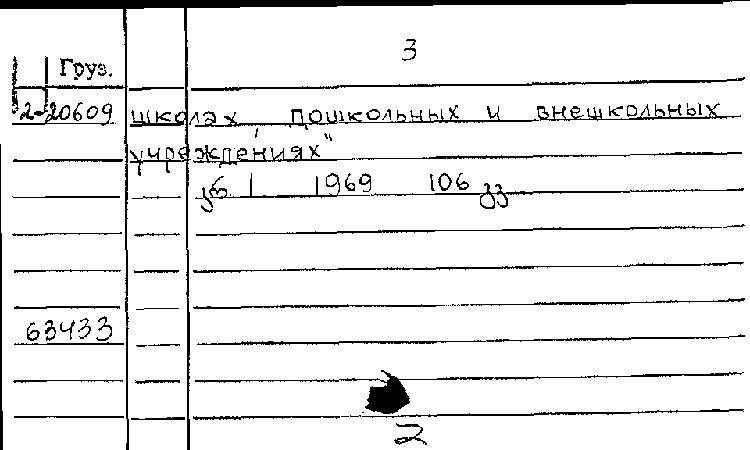 3
Груз.
2-20609 школах, дошкольных и внешкольных
учреждениях"
წიგ 1 1969 106 გვ
63433
2